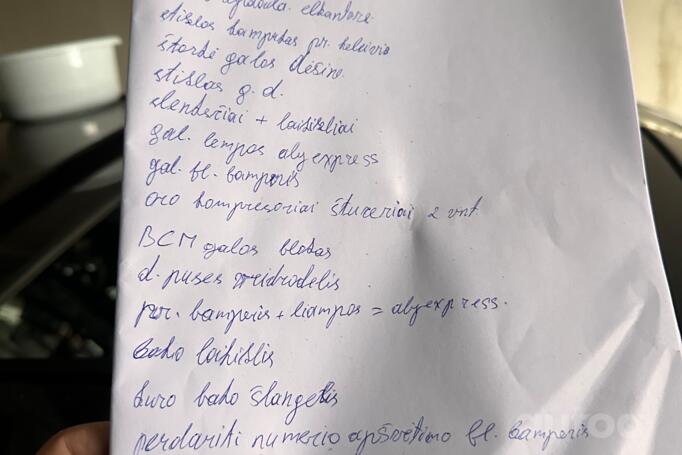 stiklas bamperas pr. keleivio
štordė galos dėsinė
stiklas g. d.
slenksčiai + laikikliai
gal. lempos alyexpress
gal. bl. bamperis
oro kompresoriai štuceriai 2 vnt.
BCM galos blokas
d. puses veidrodelis
pr. bamperis + liampos = alyexpress.
bako laikiklis
kuro bako šlangelis
perdariti numerio apšvetimo bl. bamperis